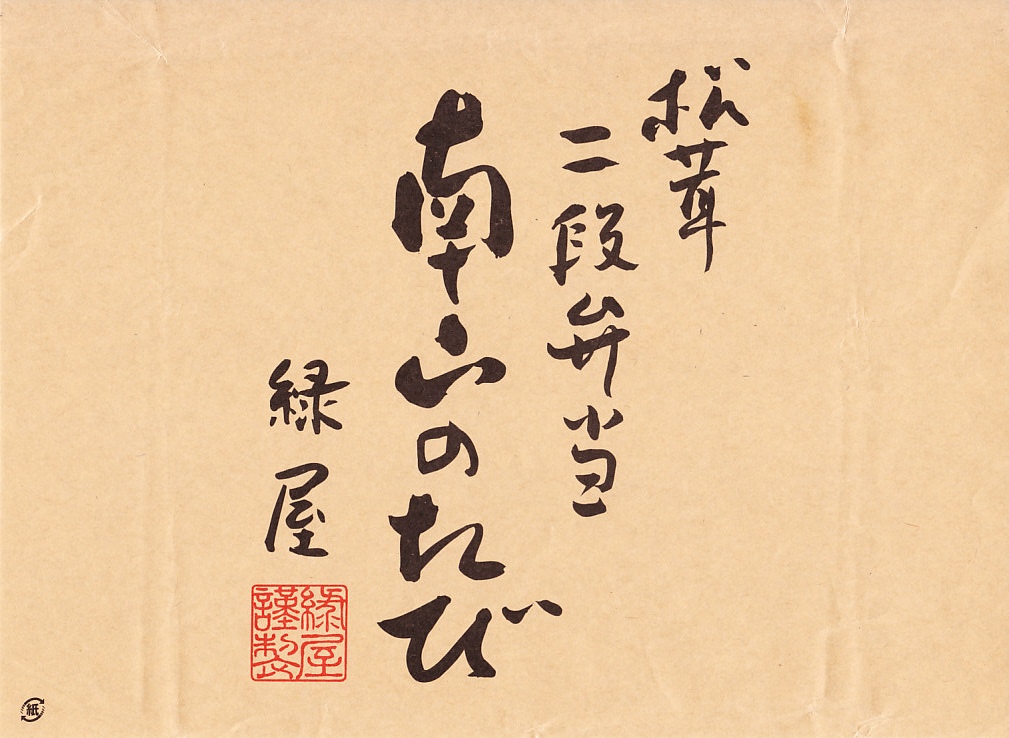 松茸
二段弁当
南山のたび
緑屋
緑屋
謹製
紙